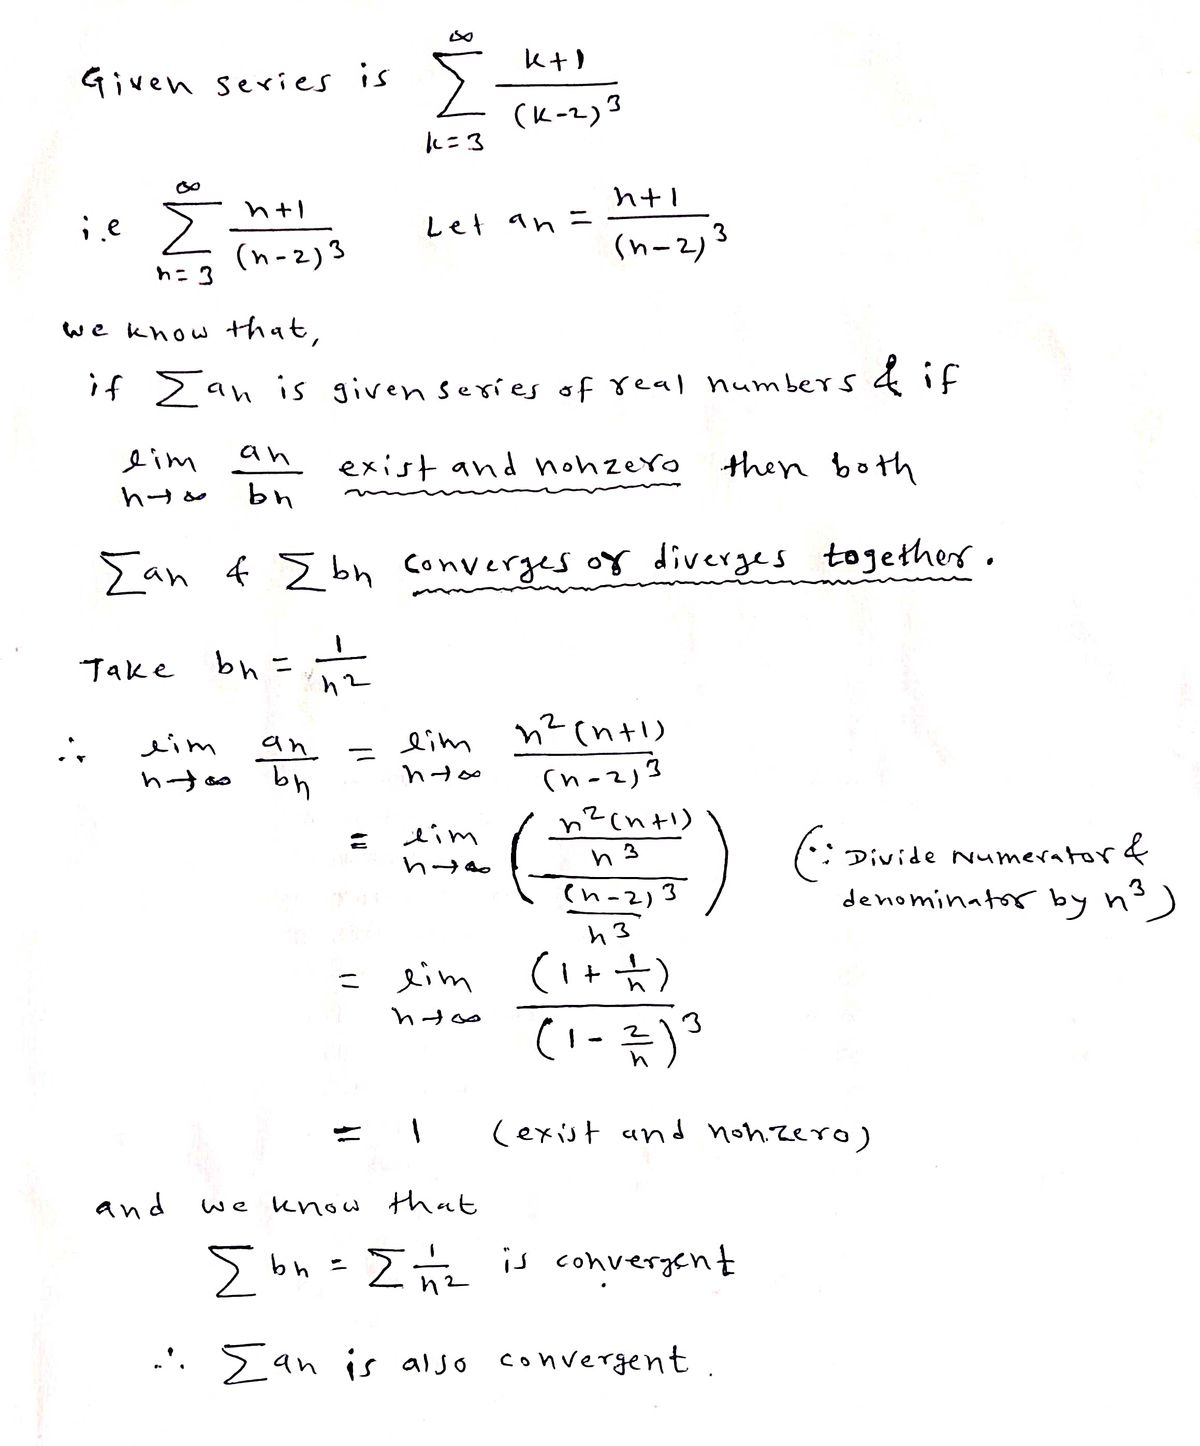 Given series is ∞∑k=3 k+1/(k-2)^3
i.e ∞∑n=3 n+1/(n-2)^3 Let an = n+1/(n-2)^3
we know that,
if ∑an is given series of real numbers & if
lim n→∞ an/bn exist and nonzero then both
∑an & ∑bn converges or diverges together.
Take bn = 1/n^2
∴ lim n→∞ an/bn = lim n→∞ n^2(n+1)/(n-2)^3
= lim n→∞ ( (n^2(n+1)/n^3) / ((n-2)^3/n^3) ) (∵ Divide Numerator & denominator by n^3)
= lim n→∞ (1+1/n)/(1-2/n)^3
= 1 (exist and nonzero)
and we know that
∑bn = ∑1/n^2 is convergent
∴ ∑an is also convergent.